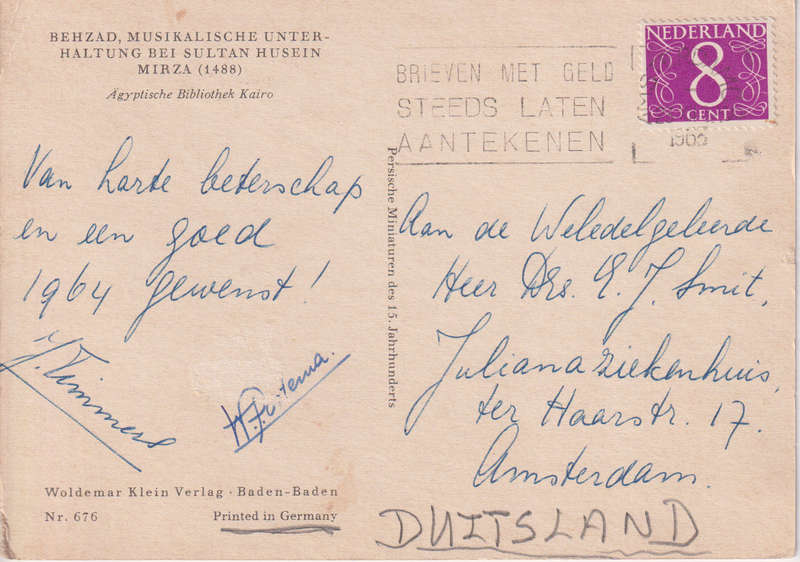 BEHZAD, MUSIKALISCHE UNTER-
HALTUNG BEI SULTAN HUSEIN
MIRZA (1488)
Ägyptische Bibliothek Kairo
Van harte beterschap
en een goed
1964 gewenst!
J. Timmers
Woldemar Klein Verlag · Baden-Baden
Nr. 676
Printed in Germany
Persische Miniaturen des 15. Jahrhunderts
BRIEVEN MET GELD
STEEDS LATEN
AANTEKENEN
NEDERLAND
8
CENT
Aan de Weledelgeleerde
Heer Drs. E. J. Smit,
Julianaziekenhuis,
ter Haarstr. 17.
Amsterdam.
DUITSLAND